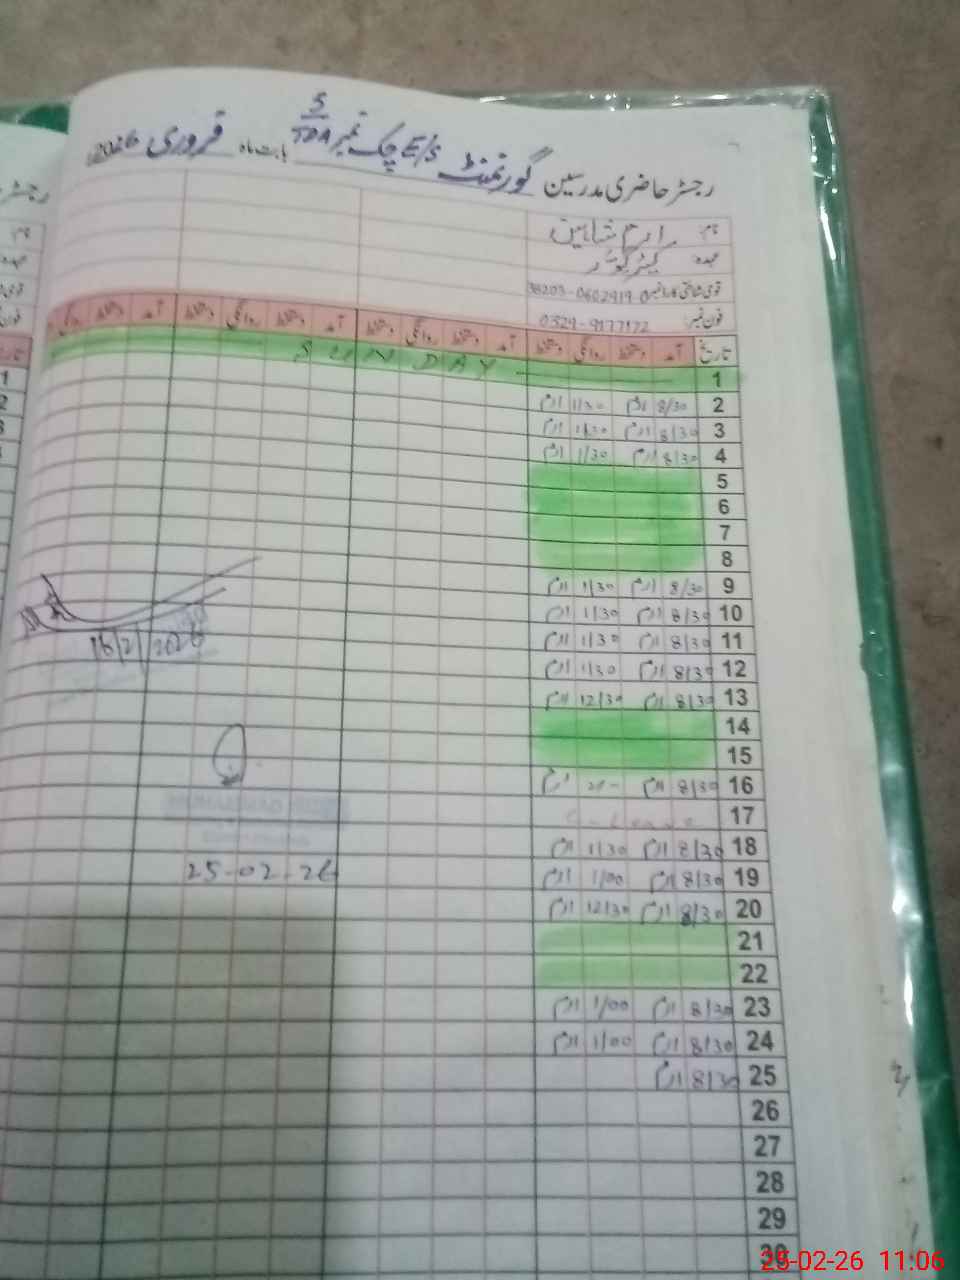 رجسٹر حاضری مدرسین گورنمنٹ E/S چک نمبر 5/TDA بابت ماہ فروری 2026
نام:
عہدہ: کیئر گیور
قومی شناختی کارڈ نمبر 38203-0602919
فون نمبر: 0329-9177172
تاریخ آمد دستخط روانگی دستخط آمد دستخط روانگی دستخط آمد دستخط روانگی دستخط آمد دستخط روانگی
1 SUNDAY
2 8/30 ارم 1/30 ارم
3 8/30 ارم 1/30 ارم
4 8/30 ارم 1/30 ارم
5
6
7
8
9 8/30 ارم 1/30 ارم
10 8/30 ارم 1/30 ارم
11 8/30 ارم 1/30 ارم
12 8/30 ارم 1/30 ارم
13 8/30 ارم 12/30 ارم
14
15
16 8/30 ارم
17 C-Leave
18 8/30 ارم 1/30 ارم
19 8/30 ارم 1/00 ارم
20 8/30 ارم 12/30 ارم
21
22
23 8/30 ارم 1/00 ارم
24 8/30 ارم 1/00 ارم
25 8/30 ارم
26
27
28
29
30
16/2/2026
MUHAMMAD
25-02-26
رجسٹر
نام
25-02-26 11:06